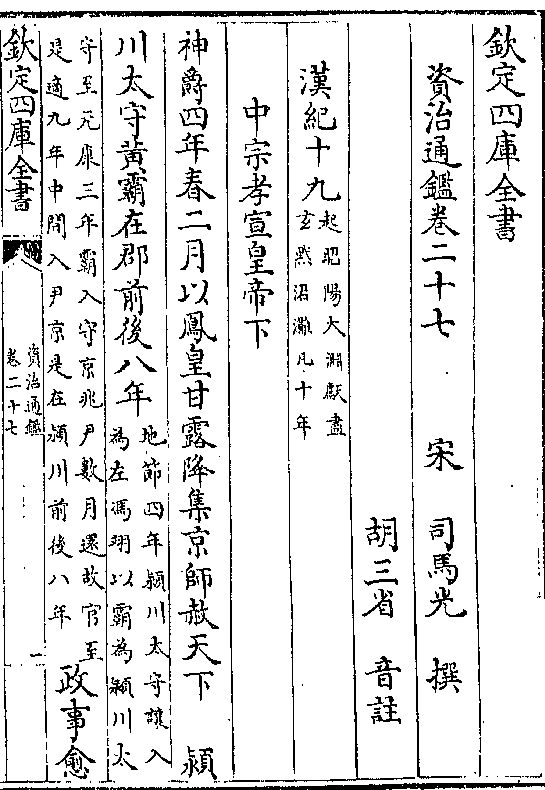 欽定四庫全書
資治通鑑卷二十七
宋　司馬光　撰
胡三省　音註
漢紀十九起昭陽大淵獻盡
玄黓涒灘凡十年
中宗孝宣皇帝下
神爵四年春二月以鳳皇甘露降集京師赦天下　潁
川太守黃霸在郡前後八年地節四年潁川太守讓入
為左馮翊以霸為潁川太
守至元康三年霸入守京兆尹數月還故官至
是適九年中間入尹京是在潁川前後八年政事愈
欽定四庫全書
資治通鑑
卷二十七
一